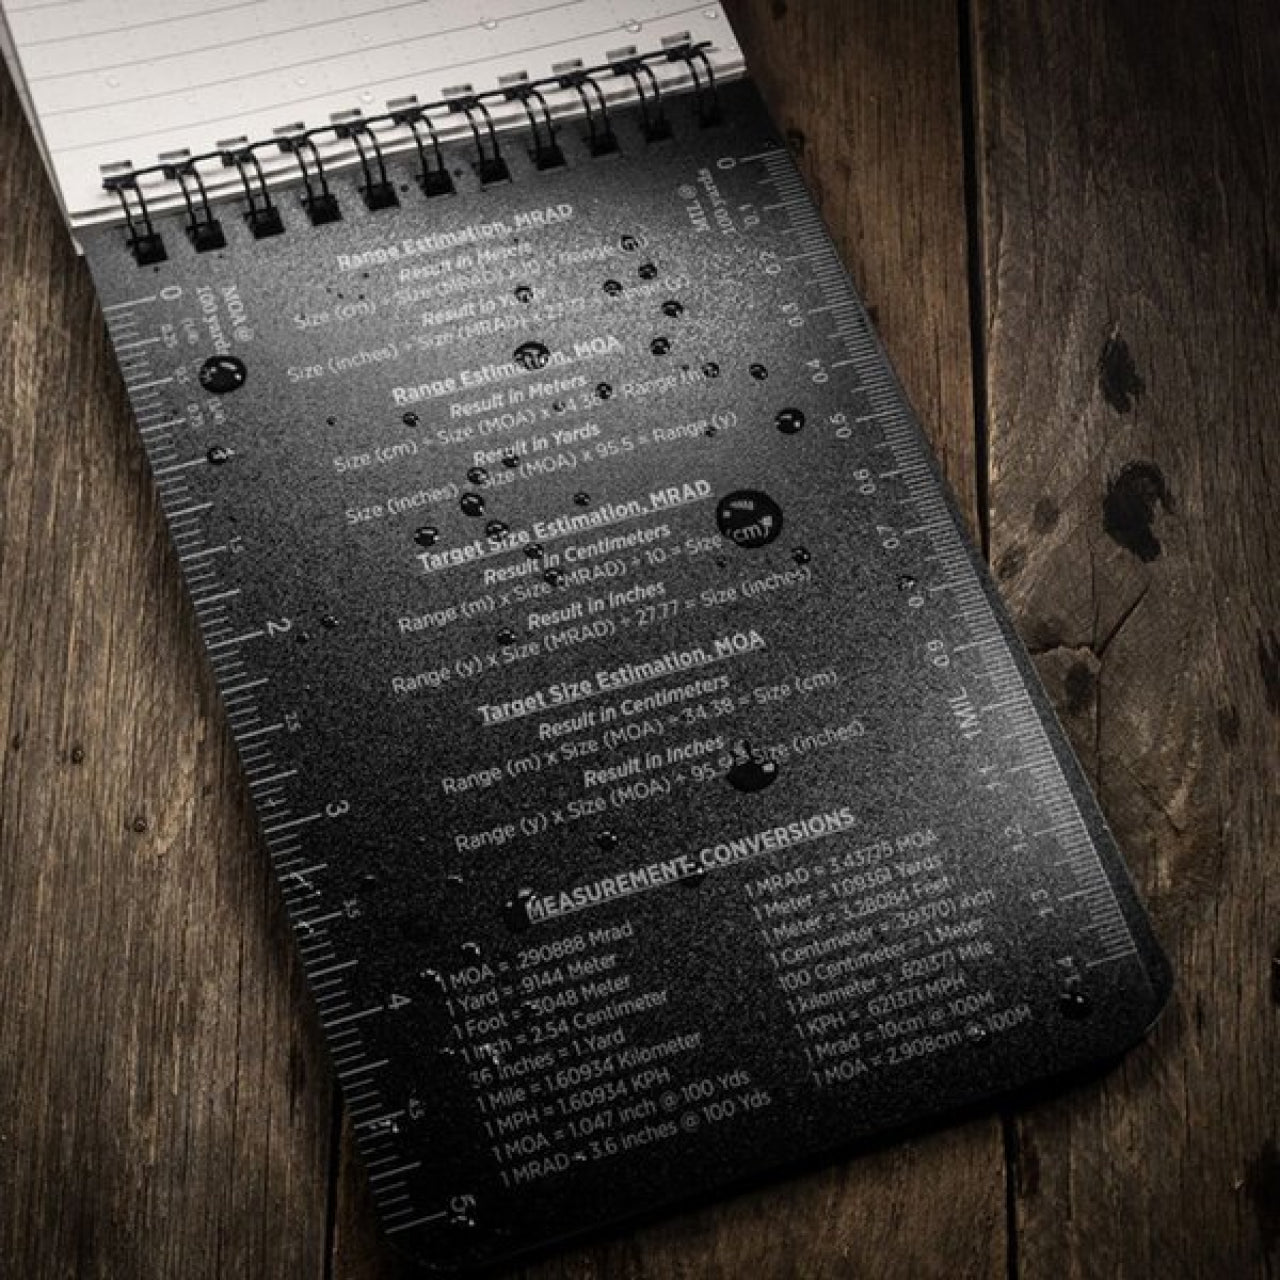 Range Estimation, MRAD
Result in Meters
Size (cm) ÷ Size (MRAD) x 10 = Range (m)
Result in Yards
Size (inches) ÷ Size (MRAD) x 27.77 = Range (y)
Range Estimation, MOA
Result in Meters
Size (cm) ÷ Size (MOA) x 34.38 = Range (m)
Result in Yards
Size (inches) ÷ Size (MOA) x 95.5 = Range (y)
Target Size Estimation, MRAD
Result in Centimeters
Range (m) x Size (MRAD) ÷ 10 = Size (cm)
Result in Inches
Range (y) x Size (MRAD) ÷ 27.77 = Size (inches)
Target Size Estimation, MOA
Result in Centimeters
Range (m) x Size (MOA) ÷ 34.38 = Size (cm)
Result in Inches
Range (y) x Size (MOA) ÷ 95.5 = Size (inches)
MEASUREMENT CONVERSIONS
1 MOA = .290888 Mrad
1 Yard = .9144 Meter
1 Foot = .3048 Meter
1 Inch = 2.54 Centimeter
36 Inches = 1 Yard
1 Mile = 1.60934 Kilometer
1 MPH = 1.60934 KPH
1 MOA = 1.047 inch @ 100 Yds
1 MRAD = 3.6 inches @ 100 Yds
1 MRAD = 3.43775 MOA
1 Meter = 1.09361 Yards
1 Meter = 3.28084 Feet
1 Centimeter = .393701 inch
100 Centimeter = 1 Meter
1 kilometer = .621371 Mile
1 KPH = .621371 MPH
1 Mrad = 10cm @ 100M
1 MOA = 2.908cm @ 100M
MOA @
100 yards
0
.5
1
1.5
2
2.5
3
3.5
4
4.5
5
MIL @
100 yards
0
0.1
0.2
0.3
0.4
0.5
0.6
0.7
0.8
0.9
1 MIL
1.1
1.2
1.3
1.4